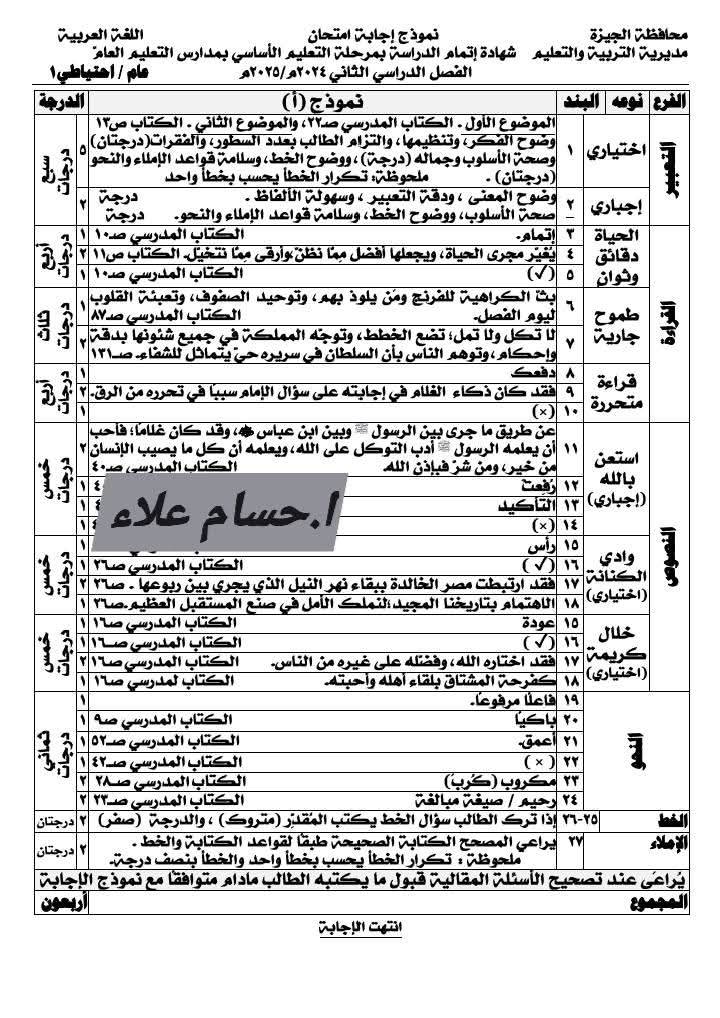 محافظة الجيزة
نموذج إجابة امتحان
اللغة العربية
مديرية التربية والتعليم
شهادة إتمام الدراسة بمرحلة التعليم الأساسي بمدارس التعليم العام
الفصل الدراسي الثاني ٢٠٢٤م/٢٠٢٥م
عام / احتياطي١
الفرع نوعه البند نموذج (أ) الدرجة
التعبير
اختياري ١
الموضوع الأول ـ الكتاب المدرسي صـ٢٢، والموضوع الثاني ـ الكتاب ص١٣
وضوح الفكر، وتنظيمها، والتزام الطالب بعدد السطور، والفقرات(درجتان)
وصحة الأسلوب وجماله (درجة) ، ووضوح الخط، وسلامة قواعد الإملاء والنحو
(درجتان) . ملحوظة: تكرار الخطأ يحسب بخطأ واحد
٥
سبع درجات
إجباري ٢
وضوح المعنى ، ودقة التعبير ، وسهولة الألفاظ . درجة
صحة الأسلوب، ووضوح الخط، وسلامة قواعد الإملاء والنحو. درجة
٢
القراءة
الحياة دقائق وثوانٍ
٣ إتمام. الكتاب المدرسي صـ١٠ ١
٤ يُغيّر مجرى الحياة، ويجعلها أفضل ممّا نظنّ،وأرقى ممّا نتخيّل. الكتاب ص١١ ٢
٥ (√) الكتاب المدرسي صـ١٠ ١
أربع درجات
طموح جارية
٦ بثّ الكراهية للفرنج ومَن يلوذ بهم، وتوحيد الصفوف، وتعبئة القلوب
ليوم الفصل. الكتاب المدرسي صـ٨٧ ١
٧ لا تكل ولا تمل؛ تضع الخطط، وتوجّه المملكة في جميع شئونها بدقة
وإحكام، وتوهم الناس بأن السلطان في سريره حيّ يتماثل للشفاء. صـ١٣١ ٢
ثلاث درجات
قراءة متحررة
٨ دفعك ١
٩ فقد كان ذكاء الغلام في إجابته على سؤال الإمام سببًا في تحرره من الرق. ٢
١٠ (×) ١
أربع درجات
النصوص
استعن بالله (إجباري)
١١ عن طريق ما جرى بين الرسول ﷺ وبين ابن عباس، وقد كان غلامًا؛ فأحب
أن يعلمه الرسول ﷺ أدب التوكل على الله، ويعلمه أن كل ما يصيب الإنسان
من خير، ومن شرّ فبإذن الله. الكتاب المدرسي صـ٤٠ ٢
١٢ رُفِعت
١٣ التأكيد
١٤ (×)
خمس درجات
ا.حسام علاء
وادي الكنانة (اختياري)
١٥ رأس ١
١٦ (√) الكتاب المدرسي صـ٢٦ ١
١٧ فقد ارتبطت مصر الخالدة ببقاء نهر النيل الذي يجري بين ربوعها . صـ٢٦ ٢
١٨ الاهتمام بتاريخنا المجيد؛لنملك الأمل في صنع المستقبل العظيم.صـ٢٦ ١
خمس درجات
خلال كريمة (اختياري)
١٥ عودة الكتاب المدرسي صـ١٦ ١
١٦ (√) الكتاب المدرسي صـ١٦ ١
١٧ فقد اختاره الله، وفضّله على غيره من الناس. الكتاب المدرسي صـ١٦ ٢
١٨ كفرحة المشتاق بلقاء أهله وأحبته. الكتاب لمدرسي صـ١٦ ١
خمس درجات
النحو
١٩ فاعلًا مرفوعًا. ١
٢٠ باكيًا الكتاب المدرسي صـ٩ ١
٢١ أعمق. الكتاب المدرسي صـ٥٢ ١
٢٢ (×) الكتاب المدرسي صـ٤٢ ١
٢٣ مكروب (كُرِبَ) الكتاب المدرسي صـ٢٨ ٢
٢٤ رحيم / صيغة مبالغة الكتاب المدرسي صـ٢٣ ٢
ثماني درجات
الخط ٢٥-٢٦ إذا ترك الطالب سؤال الخط يكتب المُقدِّر (متروك) ، والدرجة (صفر) ٢ درجتان
الإملاء ٢٧ يراعي المصحح الكتابة الصحيحة طبقًا لقواعد الكتابة والخط .
ملحوظة : تكرار الخطأ يحسب بخطأ واحد والخطأ بنصف درجة. ٢ درجتان
يُراعَى عند تصحيح الأسئلة المقالية قبول ما يكتبه الطالب مادام متوافقًا مع نموذج الإجابة
المجموع أربعون
انتهت الإجابة